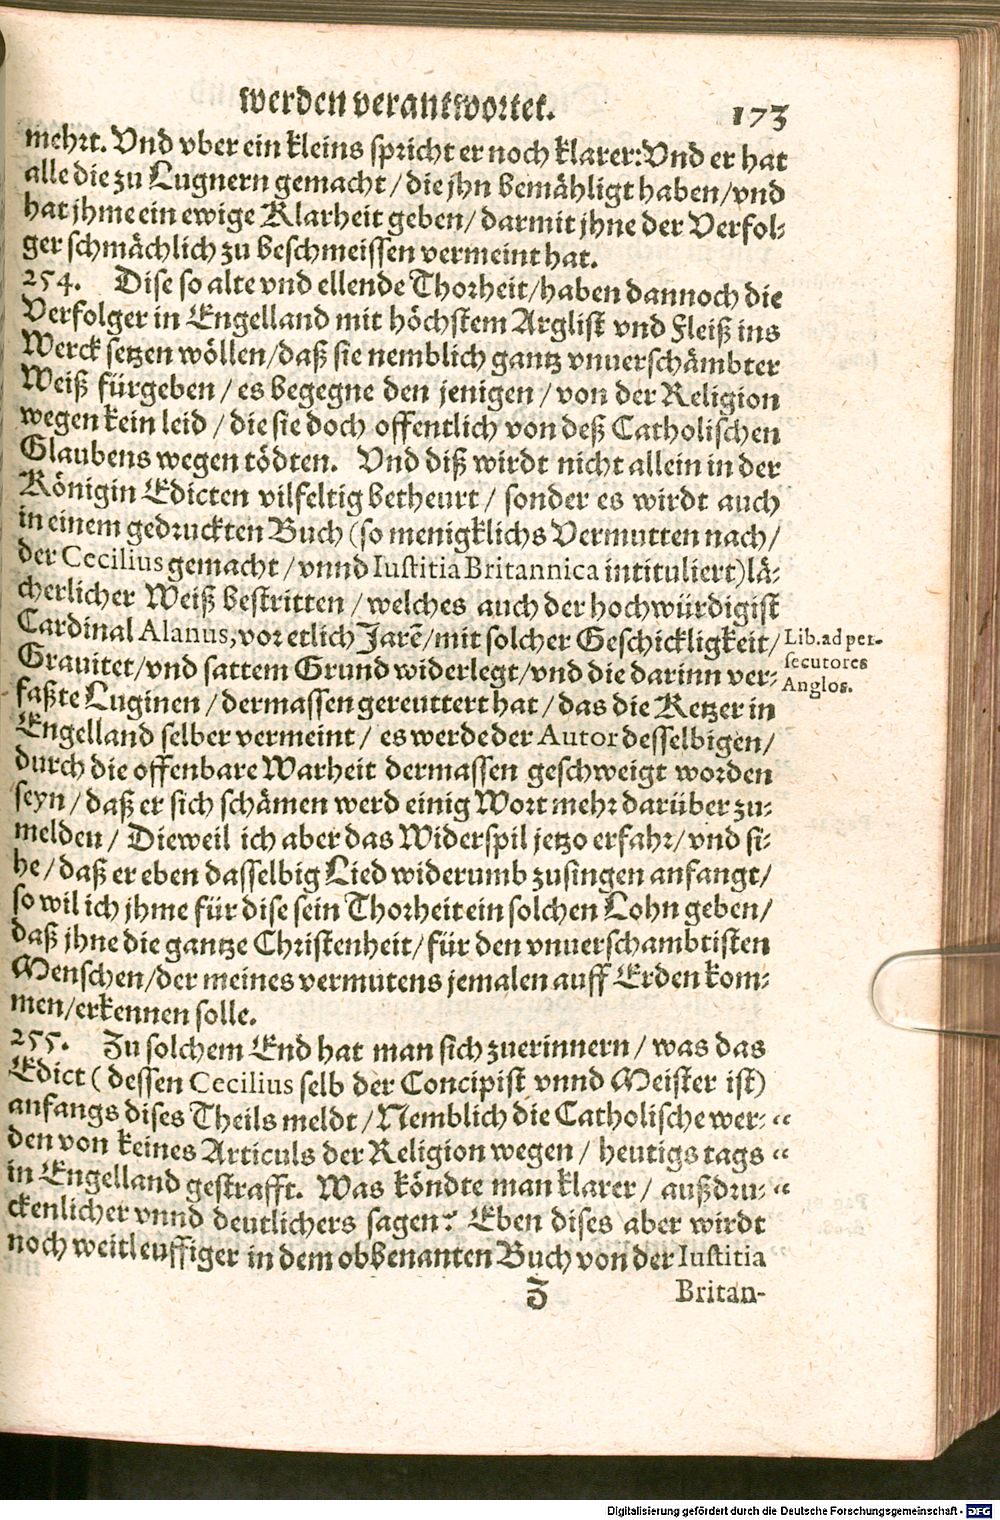 werden verantwortet.
173
mehrt. Vnd vber ein kleins spricht er noch klarer: Vnd er hat
alle die zu Lugnern gemacht / die jhn bemähligt haben / vnd
hat jhme ein ewige Klarheit geben / darmit jhne der Verfol-
ger schmächlich zu beschmeissen vermeint hat.
254. Dise so alte vnd ellende Thorheit / haben dannoch die
Verfolger in Engelland mit höchstem Arglist vnd Fleiß ins
Werck setzen wöllen / daß sie nemblich gantz vnuerschämbter
Weiß fürgeben / es begegne den jenigen / von der Religion
wegen kein leid / die sie doch offentlich von deß Catholischen
Glaubens wegen tödten. Vnd diß wirdt nicht allein in der
Königin Edicten vilfeltig betheurt / sonder es wirdt auch
in einem gedruckten Buch (so menigklichs Vermutten nach /
der Cecilius gemacht / vnnd Iustitia Britannica intituliert) lä-
cherlicher Weiß bestritten / welches auch der hochwürdigist
Cardinal Alanus, vor etlich Jarẽ / mit solcher Geschickligkeit /
Grauitet / vnd sattem Grund widerlegt / vnd die darinn ver-
faßte Luginen / dermassen gereuttert hat / das die Ketzer in
Engelland selber vermeint / es werde der Autor desselbigen /
durch die offenbare Warheit dermassen geschweigt worden
seyn / daß er sich schämen werd einig Wort mehr darüber zu-
melden / Dieweil ich aber das Widerspil jetzo erfahr / vnd si-
he / daß er eben dasselbig Lied widerumb zusingen anfangt /
so wil ich jhme für dise sein Thorheit ein solchen Lohn geben /
daß jhne die gantze Christenheit / für den vnuerschambtisten
Menschen / der meines vermutens jemalen auff Erden kom-
men / erkennen solle.
Lib. ad per-
secutores
Anglos.
255. Zu solchem End hat man sich zuerinnern / was das
Edict (dessen Cecilius selb der Concipist vnnd Meister ist)
anfangs dises Theils meldt / Nemblich die Catholische wer- “
den von keines Articuls der Religion wegen / heutigs tags “
in Engelland gestrafft. Was köndte man klarer / außdru- “
ckenlicher vnnd deutlichers sagen? Eben dises aber wirdt
noch weitleuffiger in dem obbenanten Buch von der Iustitia
Z
Britan-
Digitalisierung gefördert durch die Deutsche Forschungsgemeinschaft - DFG